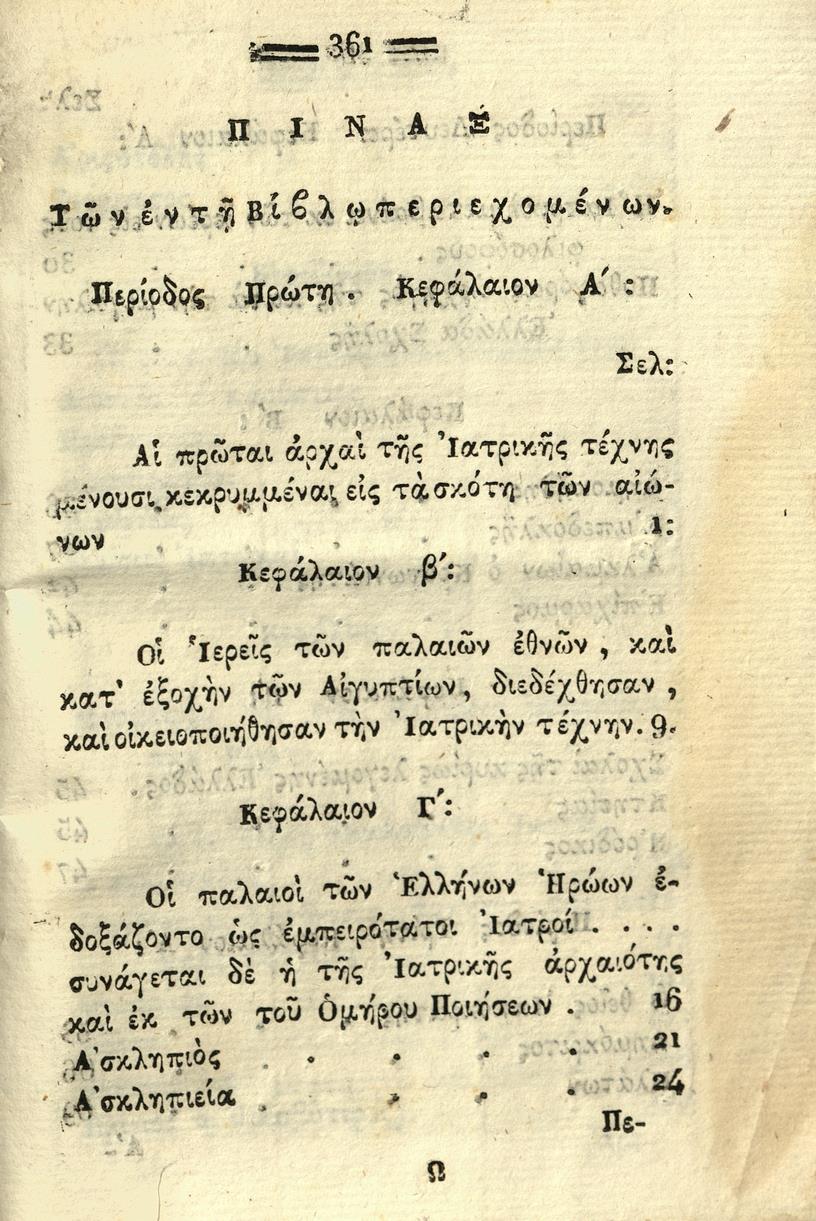 361
Π Ι Ν Α Ξ
Τῶν ἐν τῇ Βίβλῳ περιεχομένων.
Περίοδος Πρώτη. Κεφάλαιον Α´:
Σελ:
Αἱ πρῶται ἀρχαὶ τῆς Ἰατρικῆς τέχνης
μένουσι κεκρυμμέναι εἰς τὰ σκότη τῶν αἰώ-
νων 1:
Κεφάλαιον β´:
Οἱ Ἱερεῖς τῶν παλαιῶν ἐθνῶν, καὶ
κατ' ἐξοχὴν τῶν Αἰγυπτίων, διεδέχθησαν,
καὶ οἰκειοποιήθησαν τὴν Ἰατρικὴν τέχνην. 9.
Κεφάλαιον Γ´:
Οἱ παλαιοὶ τῶν Ἑλλήνων Ἡρώων ἐ-
δοξάζοντο ὡς ἐμπειρότατοι Ἰατροί . . . .
συνάγεται δὲ ἡ τῆς Ἰατρικῆς ἀρχαιότης
καὶ ἐκ τῶν τοῦ Ὁμήρου Ποιήσεων . 16
Ἀσκληπιὸς . . . . 21
Ἀσκληπιεία . . . . 24
Πε-
Ω